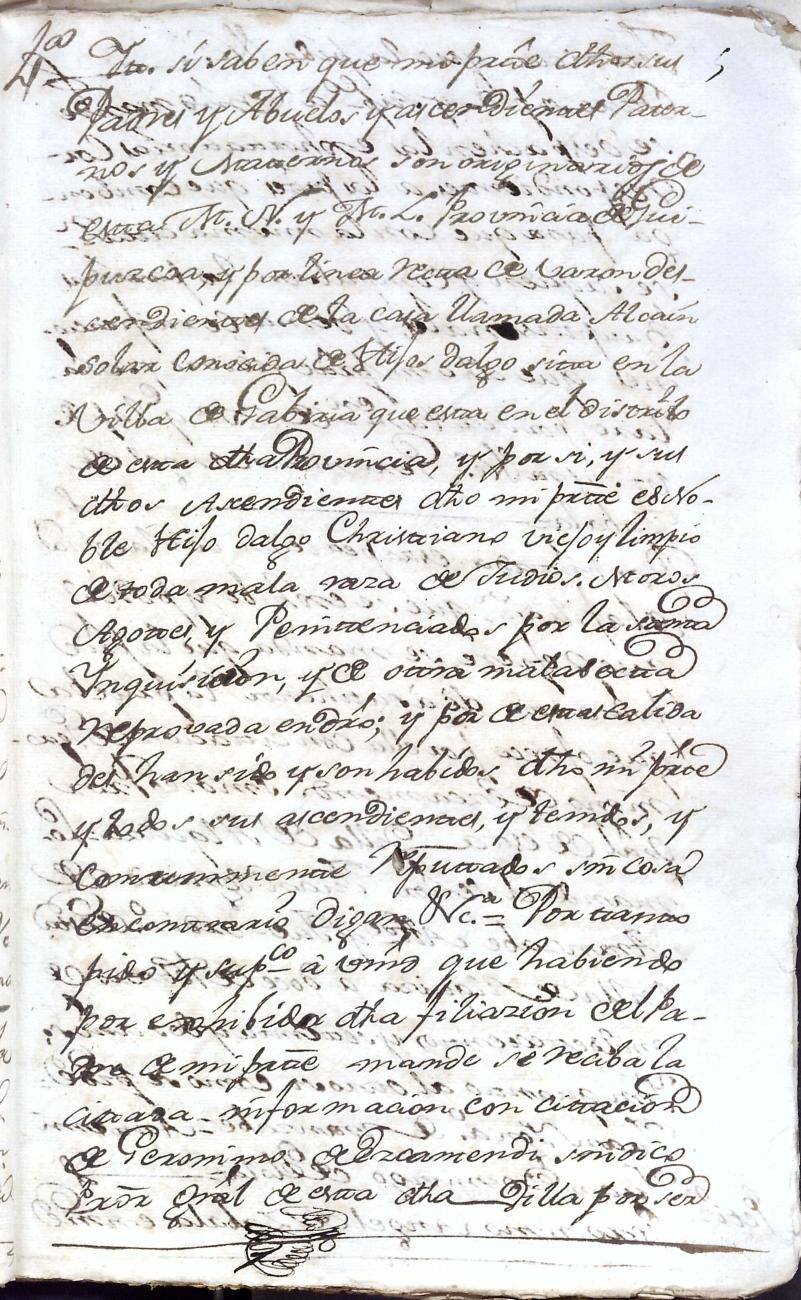 4ª Itt. si saben que mi prãe dhos sus
Padres y Abuelos y ascendientes Pater-
nos y Maternos son originarios de
esta M. N. y M. L. Provincia de Gui-
puzcoa, y por linea recta de varon des-
cendientes de la casa llamada Alcain
solar conocida de Hijos dalgo sitta en la
Villa de Gabiria que esta en el distrito
de esta dha Provincia, y por si, y sus
dhos Ascendientes dho mi prãe es No-
ble Hijo dalgo Christiano viejo y limpio
de toda mala raza de Judios. Moros
Agotes, y Penitenciados por la santa
Inquisicion, y de ottra mala secta
reprovada en dro; y por de estas calida
des han sido y son habidos dho mi prte
y todos sus ascendientes, y tenidos, y
comunmente reputtados sin cosa
en contrario digan &c.ª = Por tanto
pido y sup.co â vmd que habiendo
por exhibida dha filiazion del Pa-
dre de mi prãe mande se reciba la
cittada informacion con cittacion
de Geronimo de sindico
Pror Gral de esta dha Villa por ser